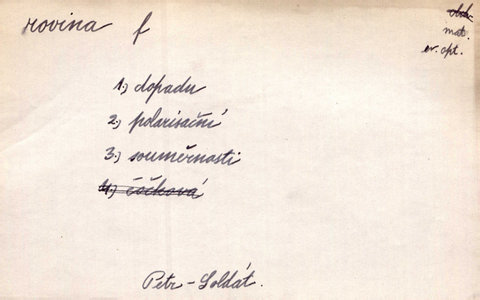 rovina f
mat.
ev. opt.
1.) dopadu
2.) polarisační
3.) souměrnosti
4.) čočková
Petr - Soldát.